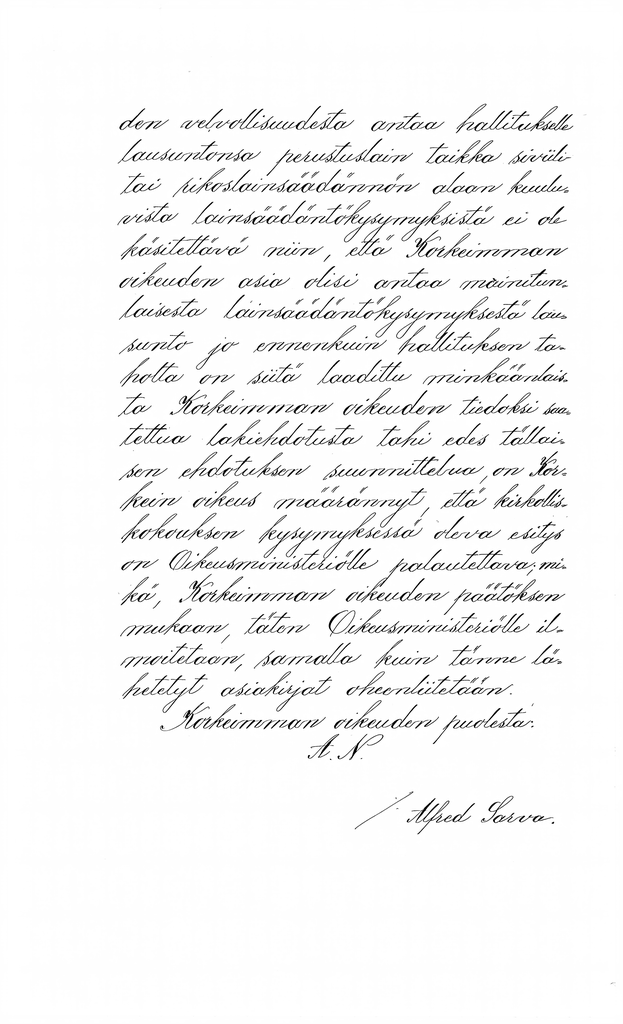 den velvollisuudesta antaa hallitukselle
lausuntonsa perustuslain taikka siviili-
tai rikoslainsäädännön alaan kuulu-
vista lainsäädäntökysymyksistä ei ole
käsitettävä niin, että Korkeimman
oikeuden asia olisi antaa mainitun-
laisesta lainsäädäntökysymyksestä lau-
sunto jo ennenkuin hallituksen ta-
holta on siitä laadittu minkäänlais-
ta Korkeimman oikeuden tiedoksi saa-
tettua lakiehdotusta tahi edes tällai-
sen ehdotuksen suunnittelua, on Kor-
kein oikeus määrännyt, että kirkollis-
kokouksen kysymyksessä oleva esitys
on Oikeusministeriölle palautettava; mi-
kä, Korkeimman oikeuden päätöksen
mukaan, täten Oikeusministeriölle il-
moitetaan, samalla kuin tänne lä-
hetetyt asiakirjat oheenliitetään.
Korkeimman oikeuden puolesta:
A. N.
/. Alfred Sarva.